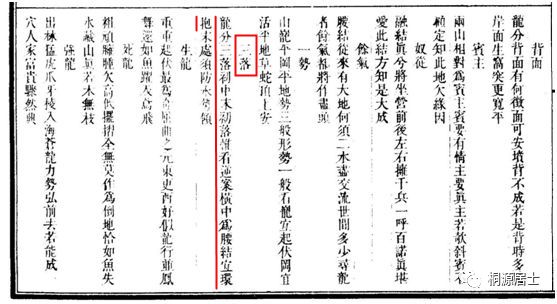 背面
龍分背面有何徵面可安墳背不成若是背時多
岸面生窩突更寬平
賓主
兩山相對為賓主賓要有情主要真主若欹斜賓不
顧定知此地欠緣因
奴從
融結真分將坐營前後左右擁千兵一呼百諾真堪
愛此結方知是大成
餘氣
腰結從來有大地何須二水盡交流世間多少尋龍
者餘氣都將作盡頭
一勢
山龍平岡平地勢三般形勢一般龍宜起伏岡宜
活平地草蛇頂上安
三落
龍分三落初中末初落須看逆案橫中為腰結宜環
抱末處須防水傾
生龍
重重起伏最為奇屈曲之元東更西好似龍行並鳳
舞還如魚躍與鳶飛
死龍
粗頑臃腫欠高低擺摺全無莫作為倒地恰如魚失
水藏山真若木無枝
強龍
出林猛虎爪牙入海蒼龍力勢弘前去若能成一
穴人家富貴驟然興
桐源居士